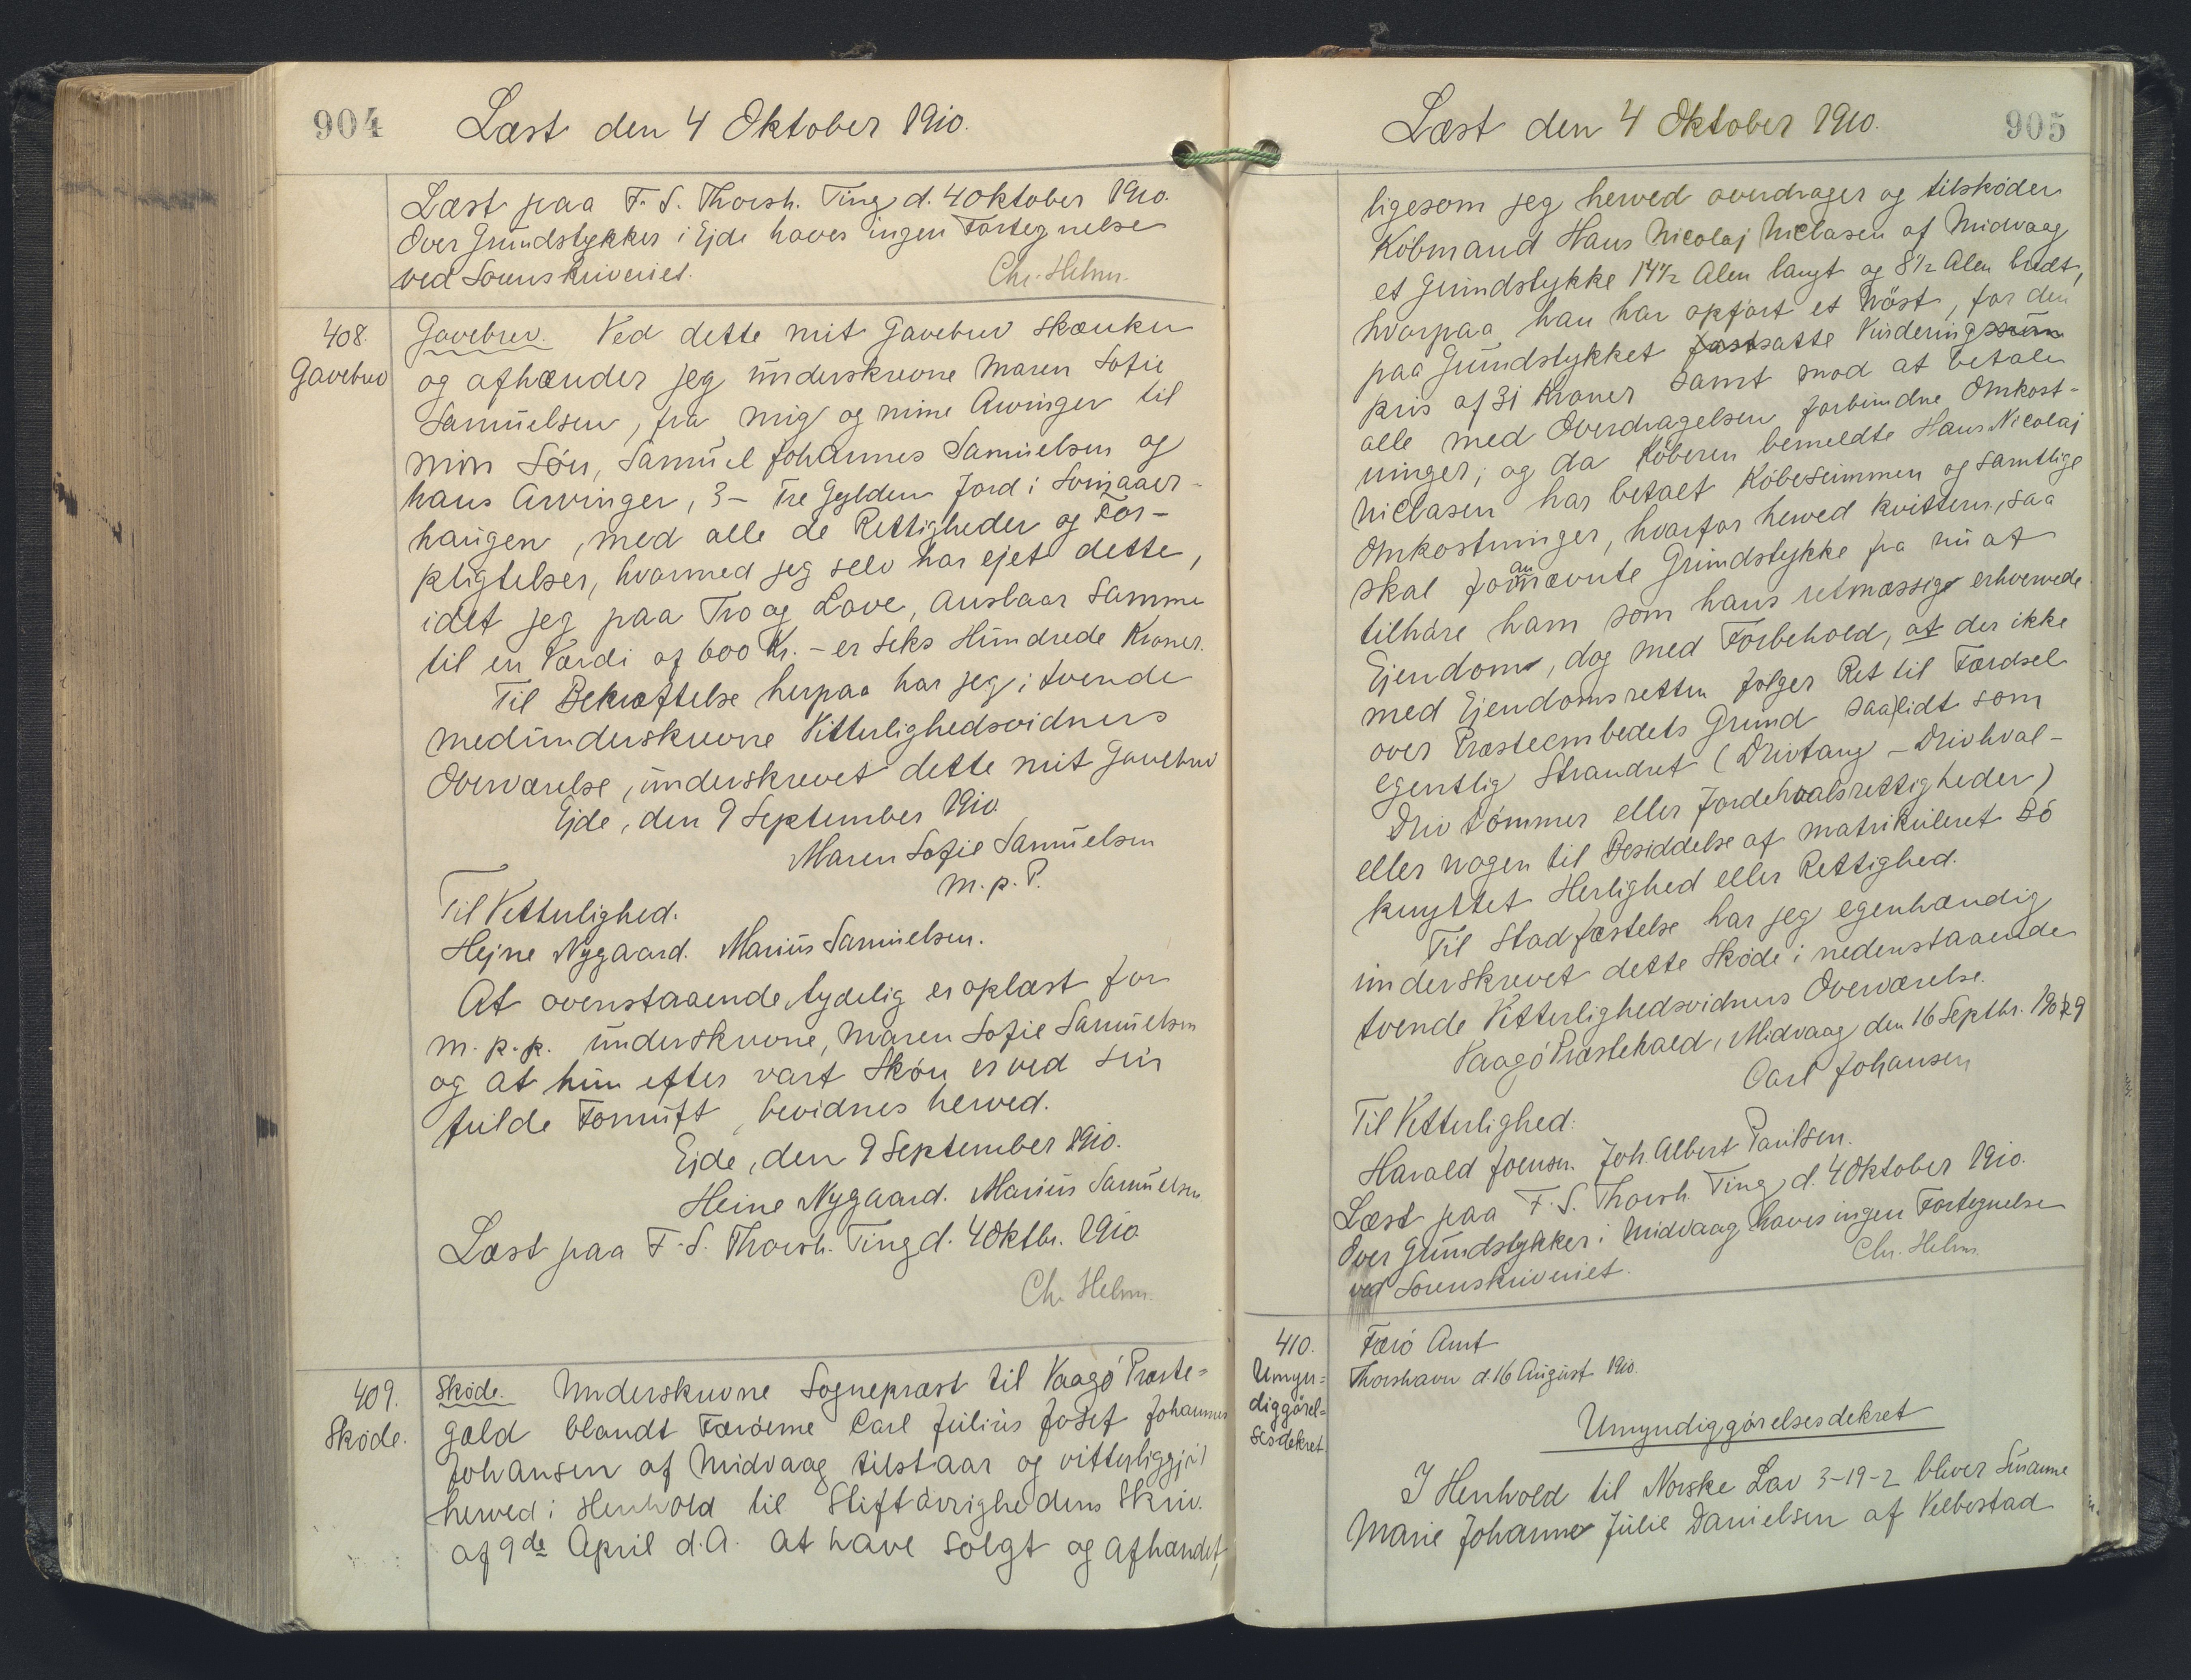 904
Læst den 4 Oktober 1910.
Læst paa F. S. Thorsh. Ting d. 4 Oktober 1910.
Over Grundstykker i Ejde haves ingen Fortegnelse
ved Sorenskriveriet.
Chr. Helms.
408.
Gavebrev
Gavebrev. Ved dette mit Gavebrev skænker
og afhænder jeg underskrevne Maren Sofie
Samuelsen, fra mig og mine Arvinger til
min Sön, Samuel Johannes Samuelsen og
hans Arvinger, 3 - Tre Gylden Jord i
haugen, med alle de Rettigheder og For-
pligtelser, hvormed jeg selv har ejet dette,
idet jeg paa Tro og Love, anslaar samme
til en Værdi af 600 Kr. - er Seks Hundrede Kroner.
Til Bekræftelse herpaa har jeg i tvende
medunderskrevne Vitterlighedsvidners
Overværelse, underskrevet dette mit Gavebrev
Ejde, den 9 September 1910.
Maren Sofie Samuelsen
m. p. P.
Til Vitterlighed.
Hejne Nygaard. Marius Samuelsen.
At ovenstaaende tydelig er oplæst for
m. p. p. underskrevne, Maren Sofie Samuelsen
og at hun efter vort Skön er ved sin
fulde Fornuft, bevidnes herved.
Ejde, den 9 September 1910.
Heine Nygaard. Marius Samuelsen
Læst paa F. S. Thorsh. Ting d. 4 Oktbr. 1910.
Chr. Helms.
409.
Sköde.
Sköde. Underskrevne Sognepræst til Vaagö Præste=
gæld blandt Færöerne Carl Julius Josef Johannes
Johansen af Midvaag tilstaar og vitterliggjör
herved i Henhold til Stiftövrighedens Skriv.
af 9de April d. A. at have solgt og afhændet,
905
Læst den 4 Oktober 1910.
ligesom jeg herved overdrager og tilsköder
Köbmand Hans Nicolaj Niclasen af Midvaag
et Grundstykke 14 1/2 Alen langt og 8 1/2 Alen bredt,
hvorpaa han har opfört et Nöst, for den
paa Grundstykket fastsatte Vurderingssum
pris af 31 Kroner samt mod at betale
alle med Overdragelsen forbundne Omkost-
ninger; og da Köberen bemeldte Hans Nicolaj
Niclasen har betalt Köbesummen og samtlige
Omkostninger, hvorfor herved kvitteres, saa
skal foranævnte Grundstykke fra nu af
tilhöre ham som hans retmæssige erhvervede
Ejendom, dog med Forbehold, at der ikke
med Ejendomsretten fölger Ret til Færdsel
over Præsteembedets Grund saalidt som
egentlig Strandret (Drivtang - Drivhval-
Drivtömmer eller Jordehvalsrettigheder)
eller nogen til Besiddelse af matrikuleret Bö
knyttet Herlighed eller Rettighed.
Til Stadfæstelse har jeg egenhændig
underskrevet dette Sköde i nedenstaaende
tvende Vitterlighedsvidners Overværelse.
Vaagö Præstekald, Midvaag den 16 Septbr. 1909
Carl Johansen
Til Vitterlighed:
Harald Joensen. Joh. Albert Poulsen.
Læst paa F. S. Thorsh. Ting d. 4 Oktober 1910.
Over Grundstykker i Midvaag haves ingen Fortegnelse
ved Sorenskriveriet.
Chr. Helms.
410.
Umyn=
diggörel=
sesdekret.
Færö Amt
Thorshavn d. 16 August 1910.
Umyndiggörelsesdekret
I Henhold til Norske Lov 3-19-2 bliver Susanne
Marie Johanne Julie Danielsen af Velbestad